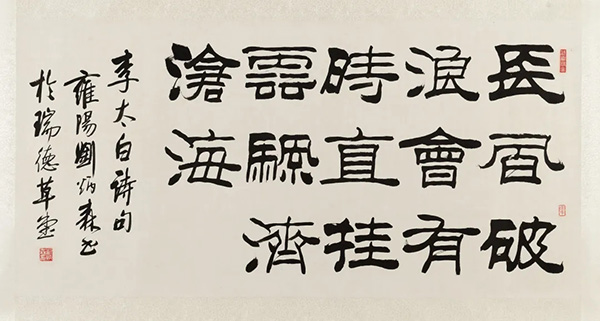 長風破
浪會有
時直挂
雲颿濟
滄海
李太白詩句
雍陽劉炳森書
於瑞德草堂